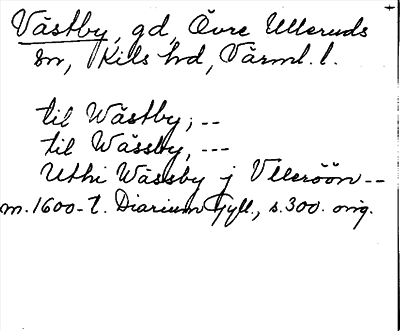 Västby, gd, Övre Ulleruds
sn, Kils hd, Värml. l.
til Wästby, --
til Wässby, ---
Uthi Wässby j Vlleröön --
m. 1600-t. Diarium Gyll., s. 300. orig.